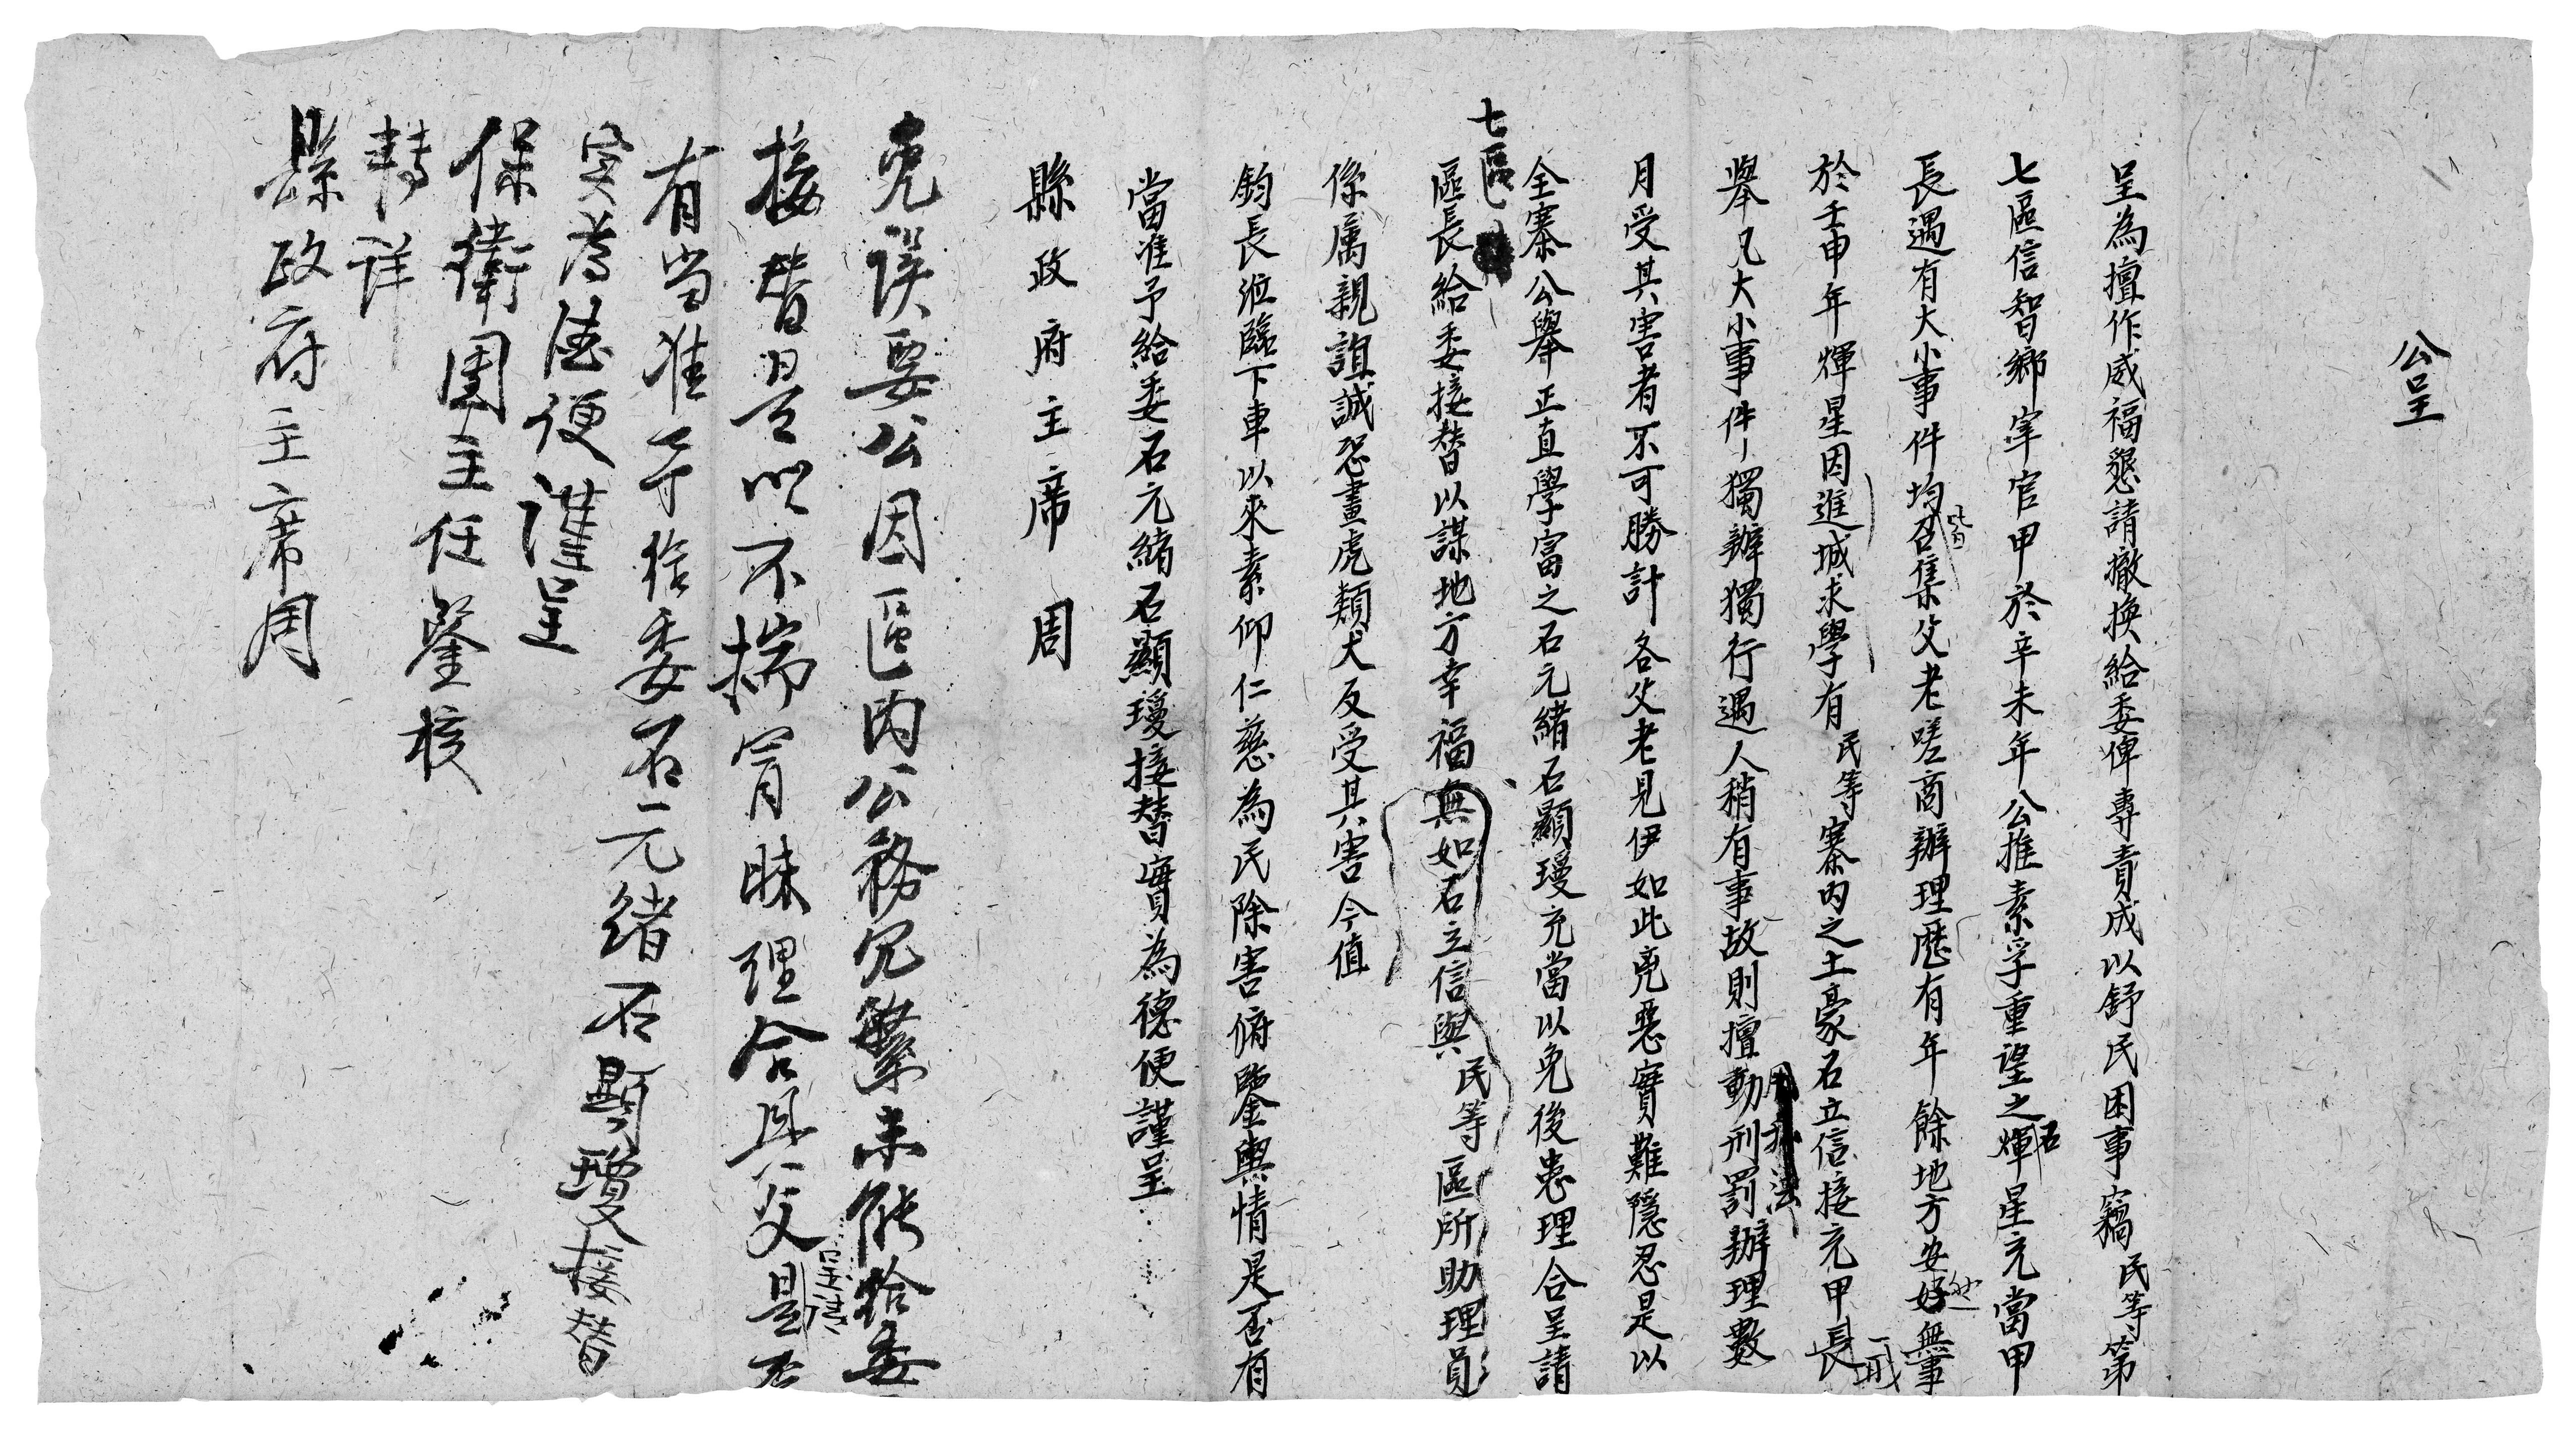 公呈
呈為擅作威福懇請撤換給委俾專責成以舒民困事竊民等第
七區信智鄉宰官甲於辛未年公推素孚重望之石輝星充當甲
長遇有大小事件均皆召集父老嗟商辦理歷有年餘地方安好無事
於壬申年輝星因進城求學有民等寨內之土豪石立信接充甲長
舉凡大小事件獨辦獨行遇人稍有事故則擅動刑罰辦理數
月受其害者不可勝計各父老見伊如此兇惡實難隱忍是以
全寨公舉正直學富之石元緒石顯瓊充當以免後患理合呈請
七區
區長給委接替以謀地方幸福無如石立信與民等區所助理員
係屬親誼誠恐畫虎類犬反受其害今值
鈞長涖臨下車以來素仰仁慈為民除害俯鑒輿情是否有
當准予給委石元緒石顯瓊接替實為德便謹呈
縣政府主席周
免误要公因區内公務冗繁未能給委
接替是以不揣冒昧理合具文呈請是否
有当准予給委石元緒石顯瓊接替
实為德便謹呈
保衛團主任鑒核
轉詳
縣政府主席周